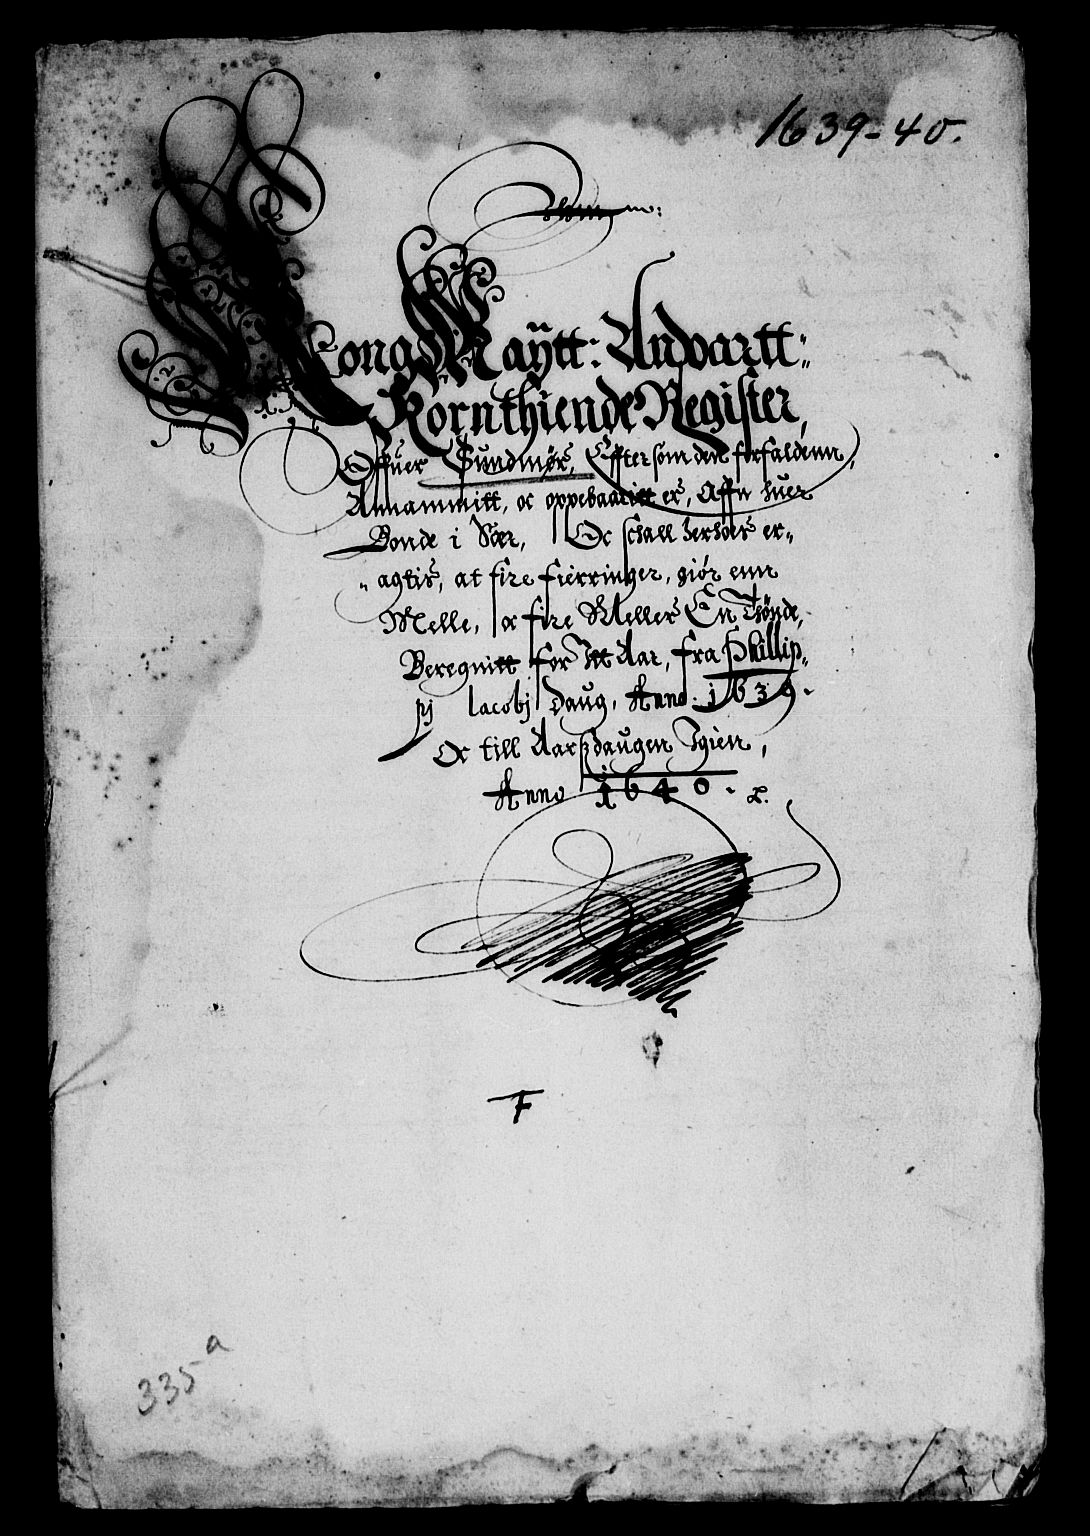 1639-40.
Kong Maÿtt: Andpartt=
Kornthiende Register,
Offuer Sundmør, Effter som den forfaldenn,
Annammitt, oc oppebaaritt er, Affu huer
Bonde i Sær, Oc schall herhoes er=
=agtis, at fire fierringer, giør enn
Melle, oc fire Meller En Thønde,
Beregnitt for Itt Aar, fra Phillip=
pj Iacobj Daug, Anno: 1639.
Oc till Aarsdaugen Igien,
Anno 1640.
F
335a